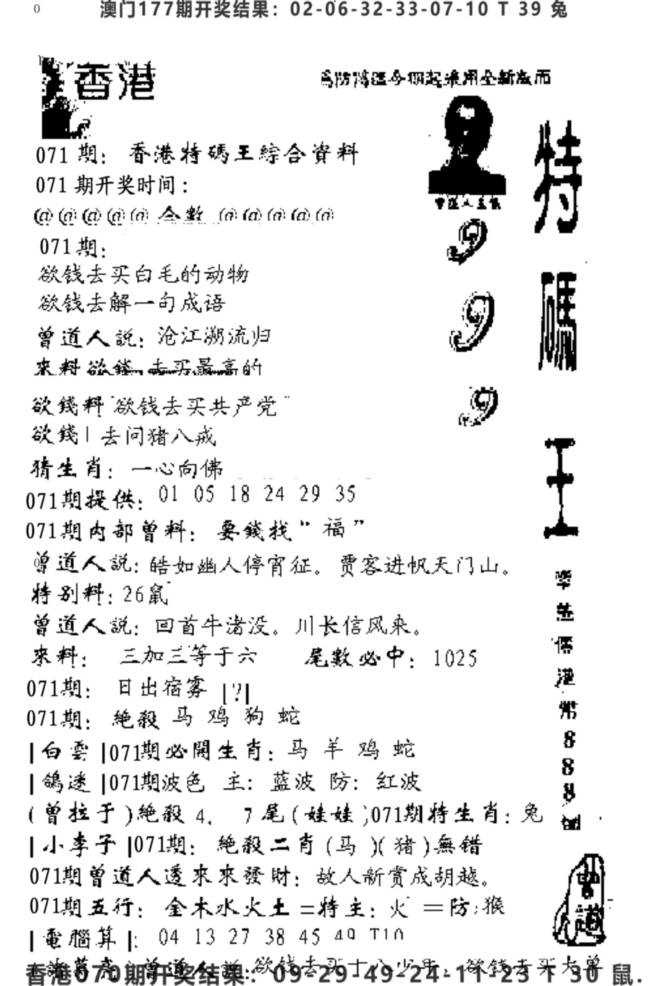 0
澳门177期开奖结果：02-06-32-33-07-10 T 39 兔
香港
071期：香港特碼王綜合資料
071期开奖时间：
@@@@@ 合數 @@@@@
071期：
欲钱去买白毛的动物
欲钱去解一句成语
曾道人説：沧江溯流归
來料欲錢，去买最高的
欲錢料“欲钱去买共产党”
欲錢|去问猪八戒
猜生肖：一心向佛
071期提供：01 05 18 24 29 35
071期内部曾料：要錢找“福”
曾道人説：皓如幽人停宵征。贾客进帆天门山。
特别料：26鼠
曾道人説：回首牛渚没。川长信风来。
來料： 三加三等于六 尾數必中：1025
071期：日出宿雾 |?|
071期：絶殺 马 鸡 狗 蛇
|白雲|071期必開生肖：马 羊 鸡 蛇
|鴿迷|071期波色 主：蓝波 防：红波
(曾拉于)絶殺 4. 7尾(娃娃)071期特生肖：兔
|小李子|071期：絶殺二肖(马)(猪)無错
071期曾道人透來來發財：故人新賞成胡越。
071期五行：金木水火土=特主：火 =防：猴
|電腦算|：04 13 27 38 45 49 T10
曾道人説：欲钱去买十八少年。欲钱去买大兽
香港070期期开奖结果：09-29-49-24-11-23 T 30 鼠.
特碼王
9
9
9
港幣888